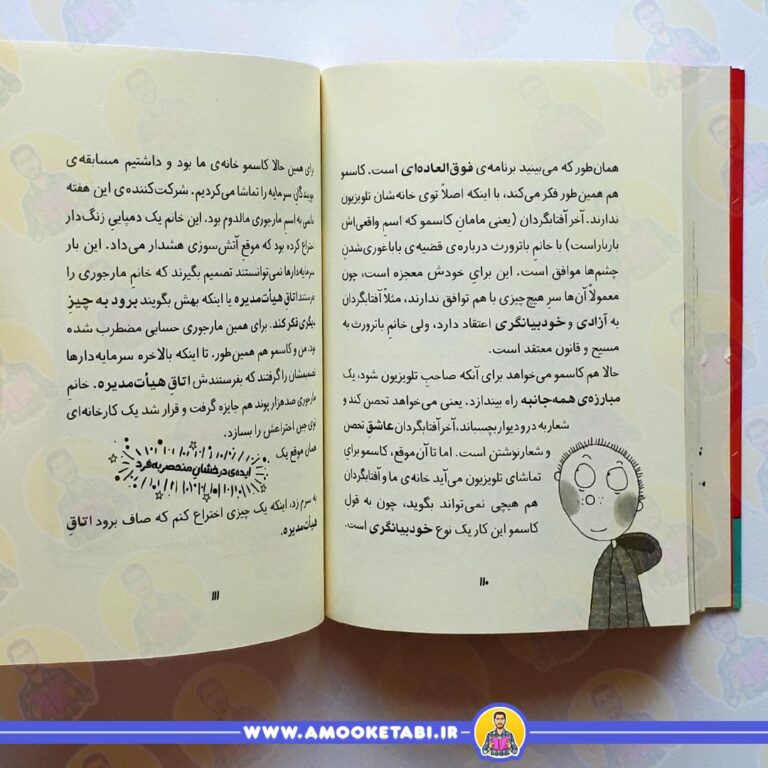 همان‌طور که می‌بینید برنامه‌ی فوق‌العاده‌ای است. کاسمو
هم همین‌طور فکر می‌کند، با اینکه اصلاً توی خانه‌شان تلویزیون
ندارند. آخر آفتابگردان (یعنی مامانِ کاسمو که اسم واقعی‌اش
بارباراست) با خانم باتروِرث درباره‌ی قضیه‌ی باباغوری‌شدنِ
چشم‌ها موافق است. این برایِ خودش معجزه است، چون
معمولاً آن‌ها سرِ هیچ‌چیزی با هم توافق ندارند، مثلاً آفتابگردان
به آزادی و خودبیانگری اعتقاد دارد، ولی خانم باتروِرث به
مسیح و قانون معتقد است.
حالا هم کاسمو می‌خواهد برای آنکه صاحبِ تلویزیون شود، یک
مبارزه‌ی همه‌جانبه راه بیندازد. یعنی می‌خواهد تحصن کند و
شعار به در و دیوار بچسباند، آخر آفتابگردان عاشقِ تحصن
و شعار نوشتن است. اما تا آن‌موقع، کاسمو برایِ
تماشای تلویزیون می‌آید خانه‌ی ما و آفتابگردان
هم هیچی نمی‌تواند بگوید، چون به قول
کاسمو این کار یک نوع خودبیانگری است.
۱۱۰
برای همین حالا کاسمو خانه‌ی ما بود و داشتیم مسابقه‌ی
سرمایه را تماشا می‌کردیم. شرکت‌کننده‌ی این هفته
به اسمِ مارجوری مالدوم بود. این خانم یک دمپایی زنگ‌دار
اختراع کرده بود که موقع آتش‌سوزی هشدار می‌داد. این بار
سرمایه‌دارها نمی‌توانستند تصمیم بگیرند که خانم مارجوری را
بفرستند اتاقِ هیأت‌مدیره یا اینکه بهش بگویند برود به چیزِ
دیگری فکر کند. برای همین مارجوری حسابی مضطرب شده
بود، من و کاسمو هم همین‌طور. تا اینکه بالاخره سرمایه‌دارها
تصمیمشان را گرفتند که بفرستندش اتاقِ هیأت‌مدیره. خانمِ
مارجوری صدهزار پوند هم جایزه گرفت و قرار شد یک کارخانه‌ای
توی چین اختراعش را بسازد.
همان موقع یک
ایده‌ی درخشانِ منحصربه‌فرد
به سرم زد، اینکه یک چیزی اختراع کنم که صاف برود اتاقِ
هیأت‌مدیره.
۱۱۱
WWW.AMOOKETABI.IR